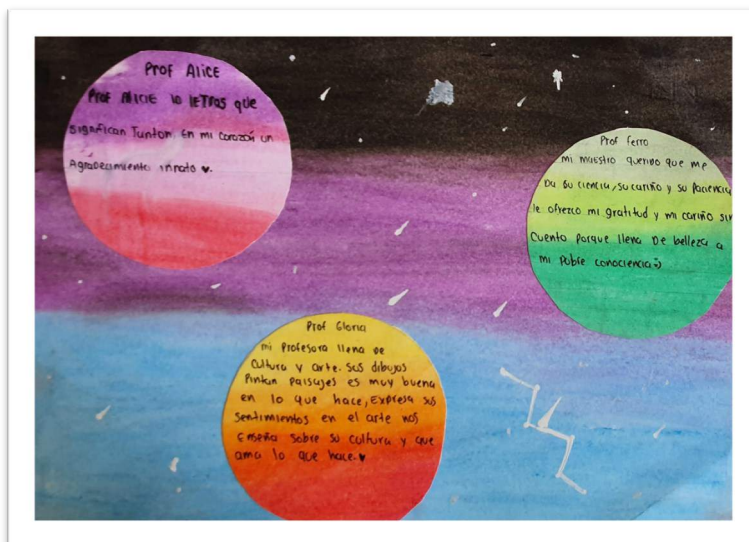 Prof Alice
Prof Alicie 10 letras que
significan Tunton. En mi corazón un
Agradecimiento innato ♥.
Prof ferro
mi maestro querido que me
Da su ciencia, su cariño y su Paciencia
le ofrezco mi gratitud y mi cariño sin
Cuento Porque llena De belleza a
mi Pobre conociencia :)
Prof Gloria
mi Profesora llena De
Cultura y arte. Sus dibujos
Pintan Paisajes es muy buena
en lo que hace, Expresa sus
sentimientos en el arte nos
Enseña sobre su cultura y que
ama lo que hace. ♥